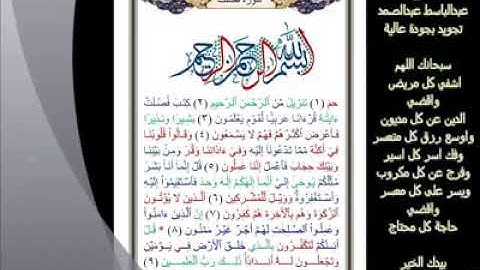 سورة فصلت
بسم الله الرحمن الرحيم
حم (١) تنزيل من الرحمن الرحيم (٢) كتب فصلت
ءايته قرءانا عربيا لقوم يعلمون (٣) بشيرا ونذيرا
فأعرض أكثرهم فهم لا يسمعون (٤) وقالوا قلوبنا
في أكنة مما تدعونا إليه وفي ءاذاننا وقر ومن بيننا
وبينك حجاب فاعمل إننا عملون (٥) قل إنما أنا بشر
مثلكم يوحى إلي أنما إلهكم إله وحد فاستقيموا إليه
واستغفروه وويل للمشركين (٦) الذين لا يؤتون
الزكوة وهم بالأخرة هم كفرون (٧) إن الذين ءامنوا
وعملوا الصلحت لهم أجر غير ممنون (٨) * قل
أئنكم لتكفرون بالذي خلق الأرض في يومين
وتجعلون له أندادا ذلك رب العلمين (٩)
عبدالباسط عبدالصمد
تجويد بجودة عالية
سبحانك اللهم
اشفي كل مريض
واقضي
الدين عن كل مديون
واوسع رزق كل متعسر
وفك اسر كل اسير
وفرج عن كل مكروب
ويسر على كل معسر
واقضي
حاجة كل محتاج
بيدك الخير